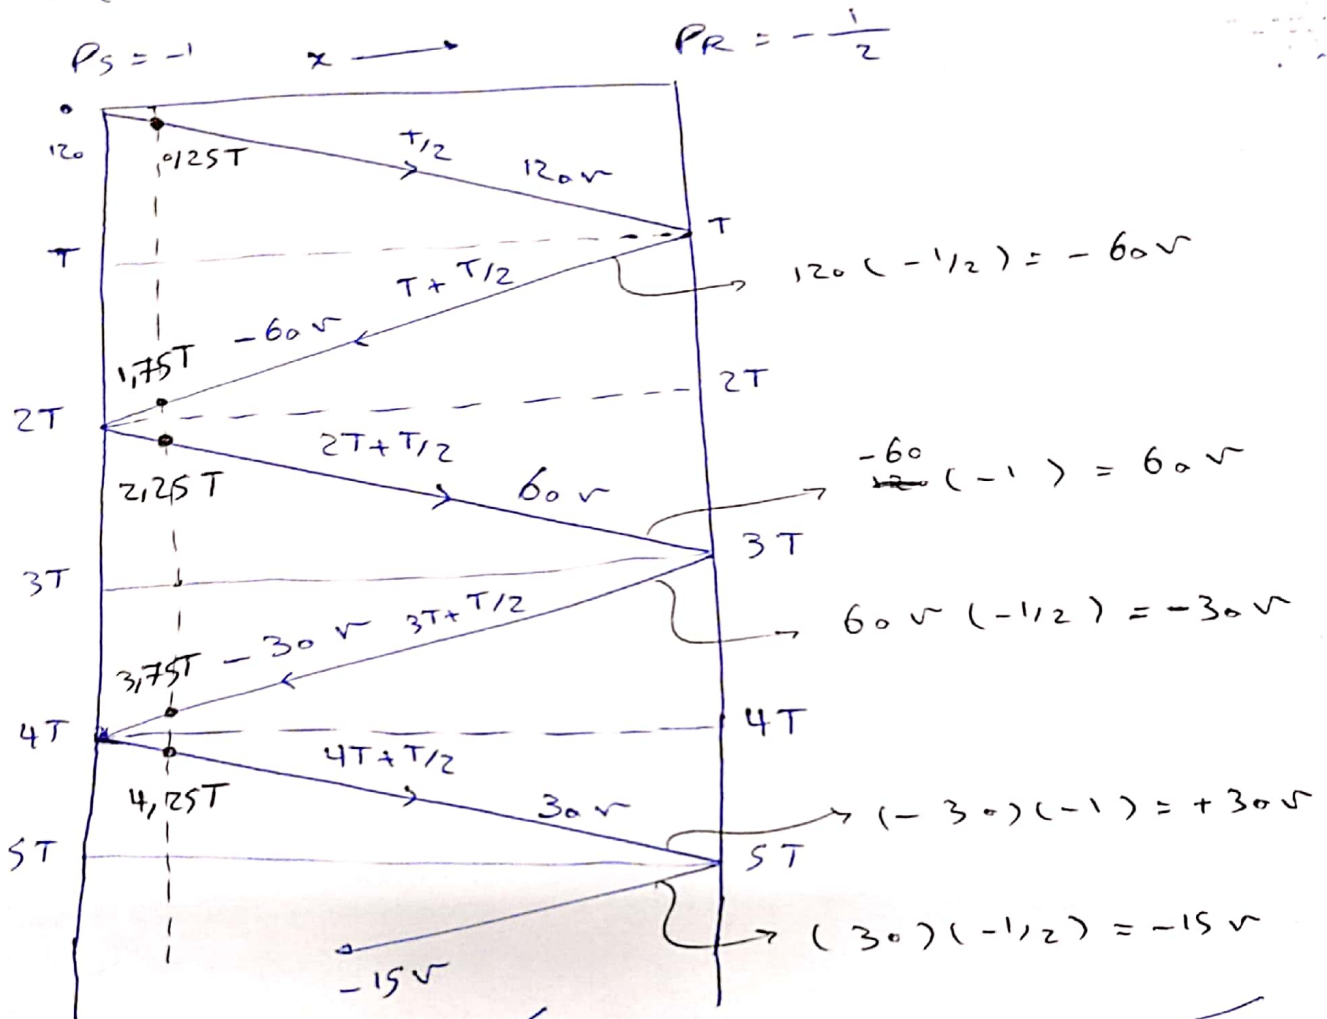 ρs = -1 x ρR = - 1/2
0
120
0,25T
T/2 120 v
T T
T + T/2 120 ( - 1/2 ) = - 60 v
- 60 v
1,75T
2T 2T
2T + T/2
2,25T
60 v
-60
120 ( - 1 ) = 60 v
3T 3T
3T + T/2
- 30 v
60 v ( - 1/2 ) = - 30 v
3,75T
4T 4T
4T + T/2
4,25T
30 v
( - 30 ) ( - 1 ) = + 30 v
5T 5T
( 30 ) ( - 1/2 ) = - 15 v
- 15 v